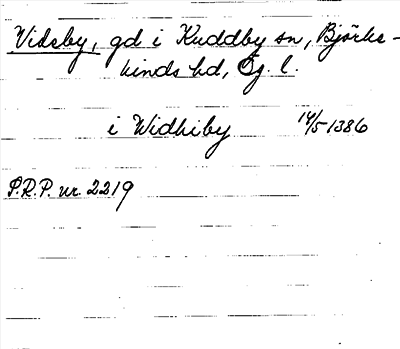 Vidsby, gd i Kuddby sn, Björke-
kinds hd, Ög. l.
i Widhiby 14/5 1386
P.R.P. nr. 2219